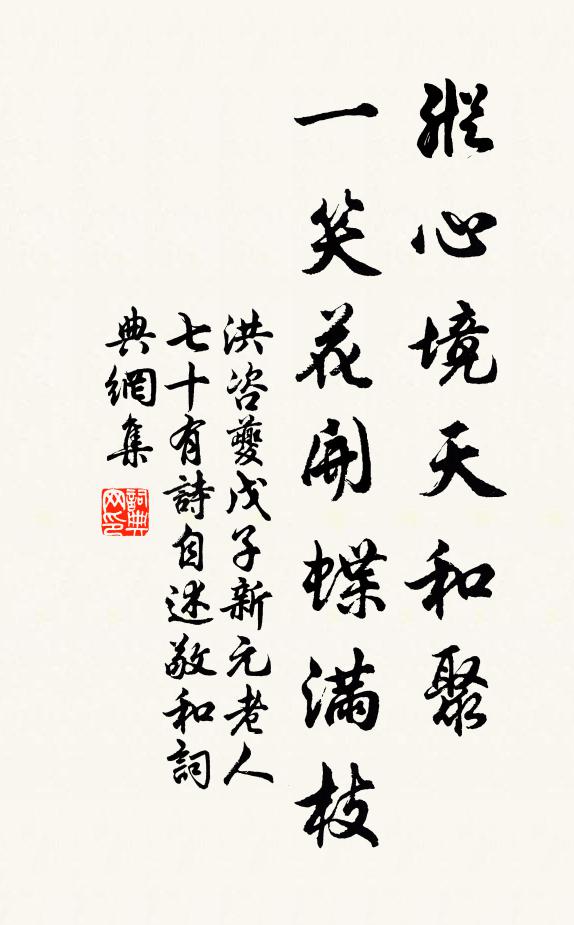 縱心境天和聚
一笑花開蝶滿枝
洪咨夔戊子新元老人
七十有詩自述敬和詞
典網集
詞典
网印